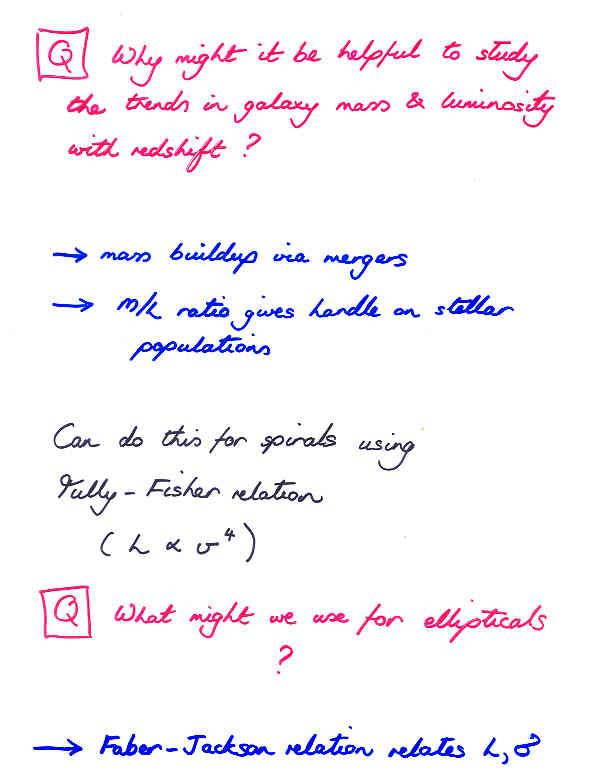 Q Why might it be helpful to study
the trends in galaxy mass & luminosity
with redshift ?
→ mass buildup via mergers
→ M/L ratio gives handle on stellar
populations
Can do this for spirals using
Tully-Fisher relation
( L ∝ v⁴ )
Q What might we use for ellipticals
?
→ Faber-Jackson relation relates L, σ